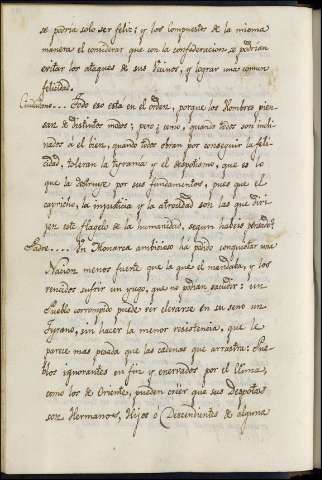 se podria solo ser feliz; y los Compuestos de la misma
manera el considerar que con la confederacion, se podrian
evitar los ataques de sus Vecinos, y lograr una comun
felicidad.
Ciudadano.... Todo eso esta en el orden, porque los Hombres pien-
san de distintos modos; pero, como, quando todos son incli-
nados a el bien, quando todos obran por conseguir la feli-
cidad, toleran la tyrania y el despotismo, que es lo
que la destruye por sus fundamentos, pues que el
capricho, la injusticia y la atrocidad son las que diri-
jen este flagelo de la humanidad, segun habeis pintado?
Padre.... Un Monarca ambicioso ha podido conquistar una
Nacion menos fuerte que la que el mandaba, y los
vencidos sufrir un yugo, que no podian sacudir: un
Pueblo corrompido puede ver elevarse en su seno un
Tyrano, sin hacer la menor resistencia, que le
parece mas pesada que las cadenas que arrastra: Pue-
blos ignorantes en fin y enervados por el Clima,
como los de Oriente, pueden creer que sus Despotas
son Hermanos, Hijos ó Descendientes de alguna